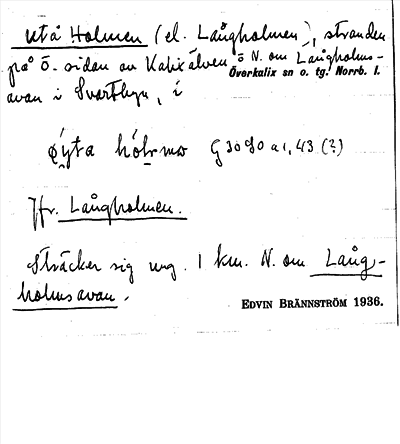 Utå Holmen (el. Långholmen), stranden
på ö. sidan av Kalixälven ö N. om Långholms-
Överkalix sn o. tg. Norrb. l.
avan i Svartbyn, i
øyta hólmɷ G 3090 a 1, 43 (?)
Jfr. Långholmen.
Sträcker sig ung. 1 km. N. om Lång-
holmsavan.
EDVIN BRÄNNSTRÖM 1936.